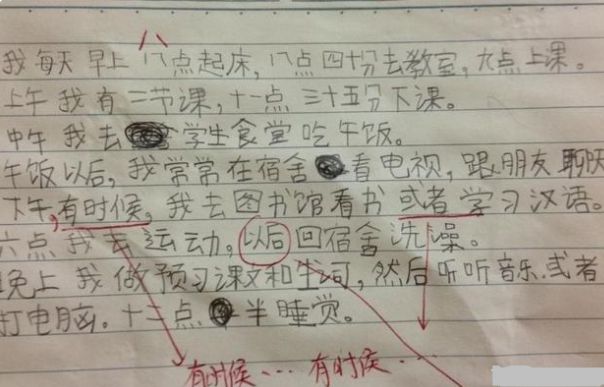 八
我每天早上八点起床,八点四十份去教室,九点上课。
上午我有三节课,十一点三十五分下课。
中午我去学生食堂吃午饭。
午饭以后,我常常在宿舍看电视,跟朋友聊天
下午,有时候,我去图书馆看书或者学习汉语。
六点我去运动,以后回宿舍洗澡。
晚上我做预习课文和生词,然后听听音乐.或者
打电脑。十二点半睡觉。
有时候…有时候…